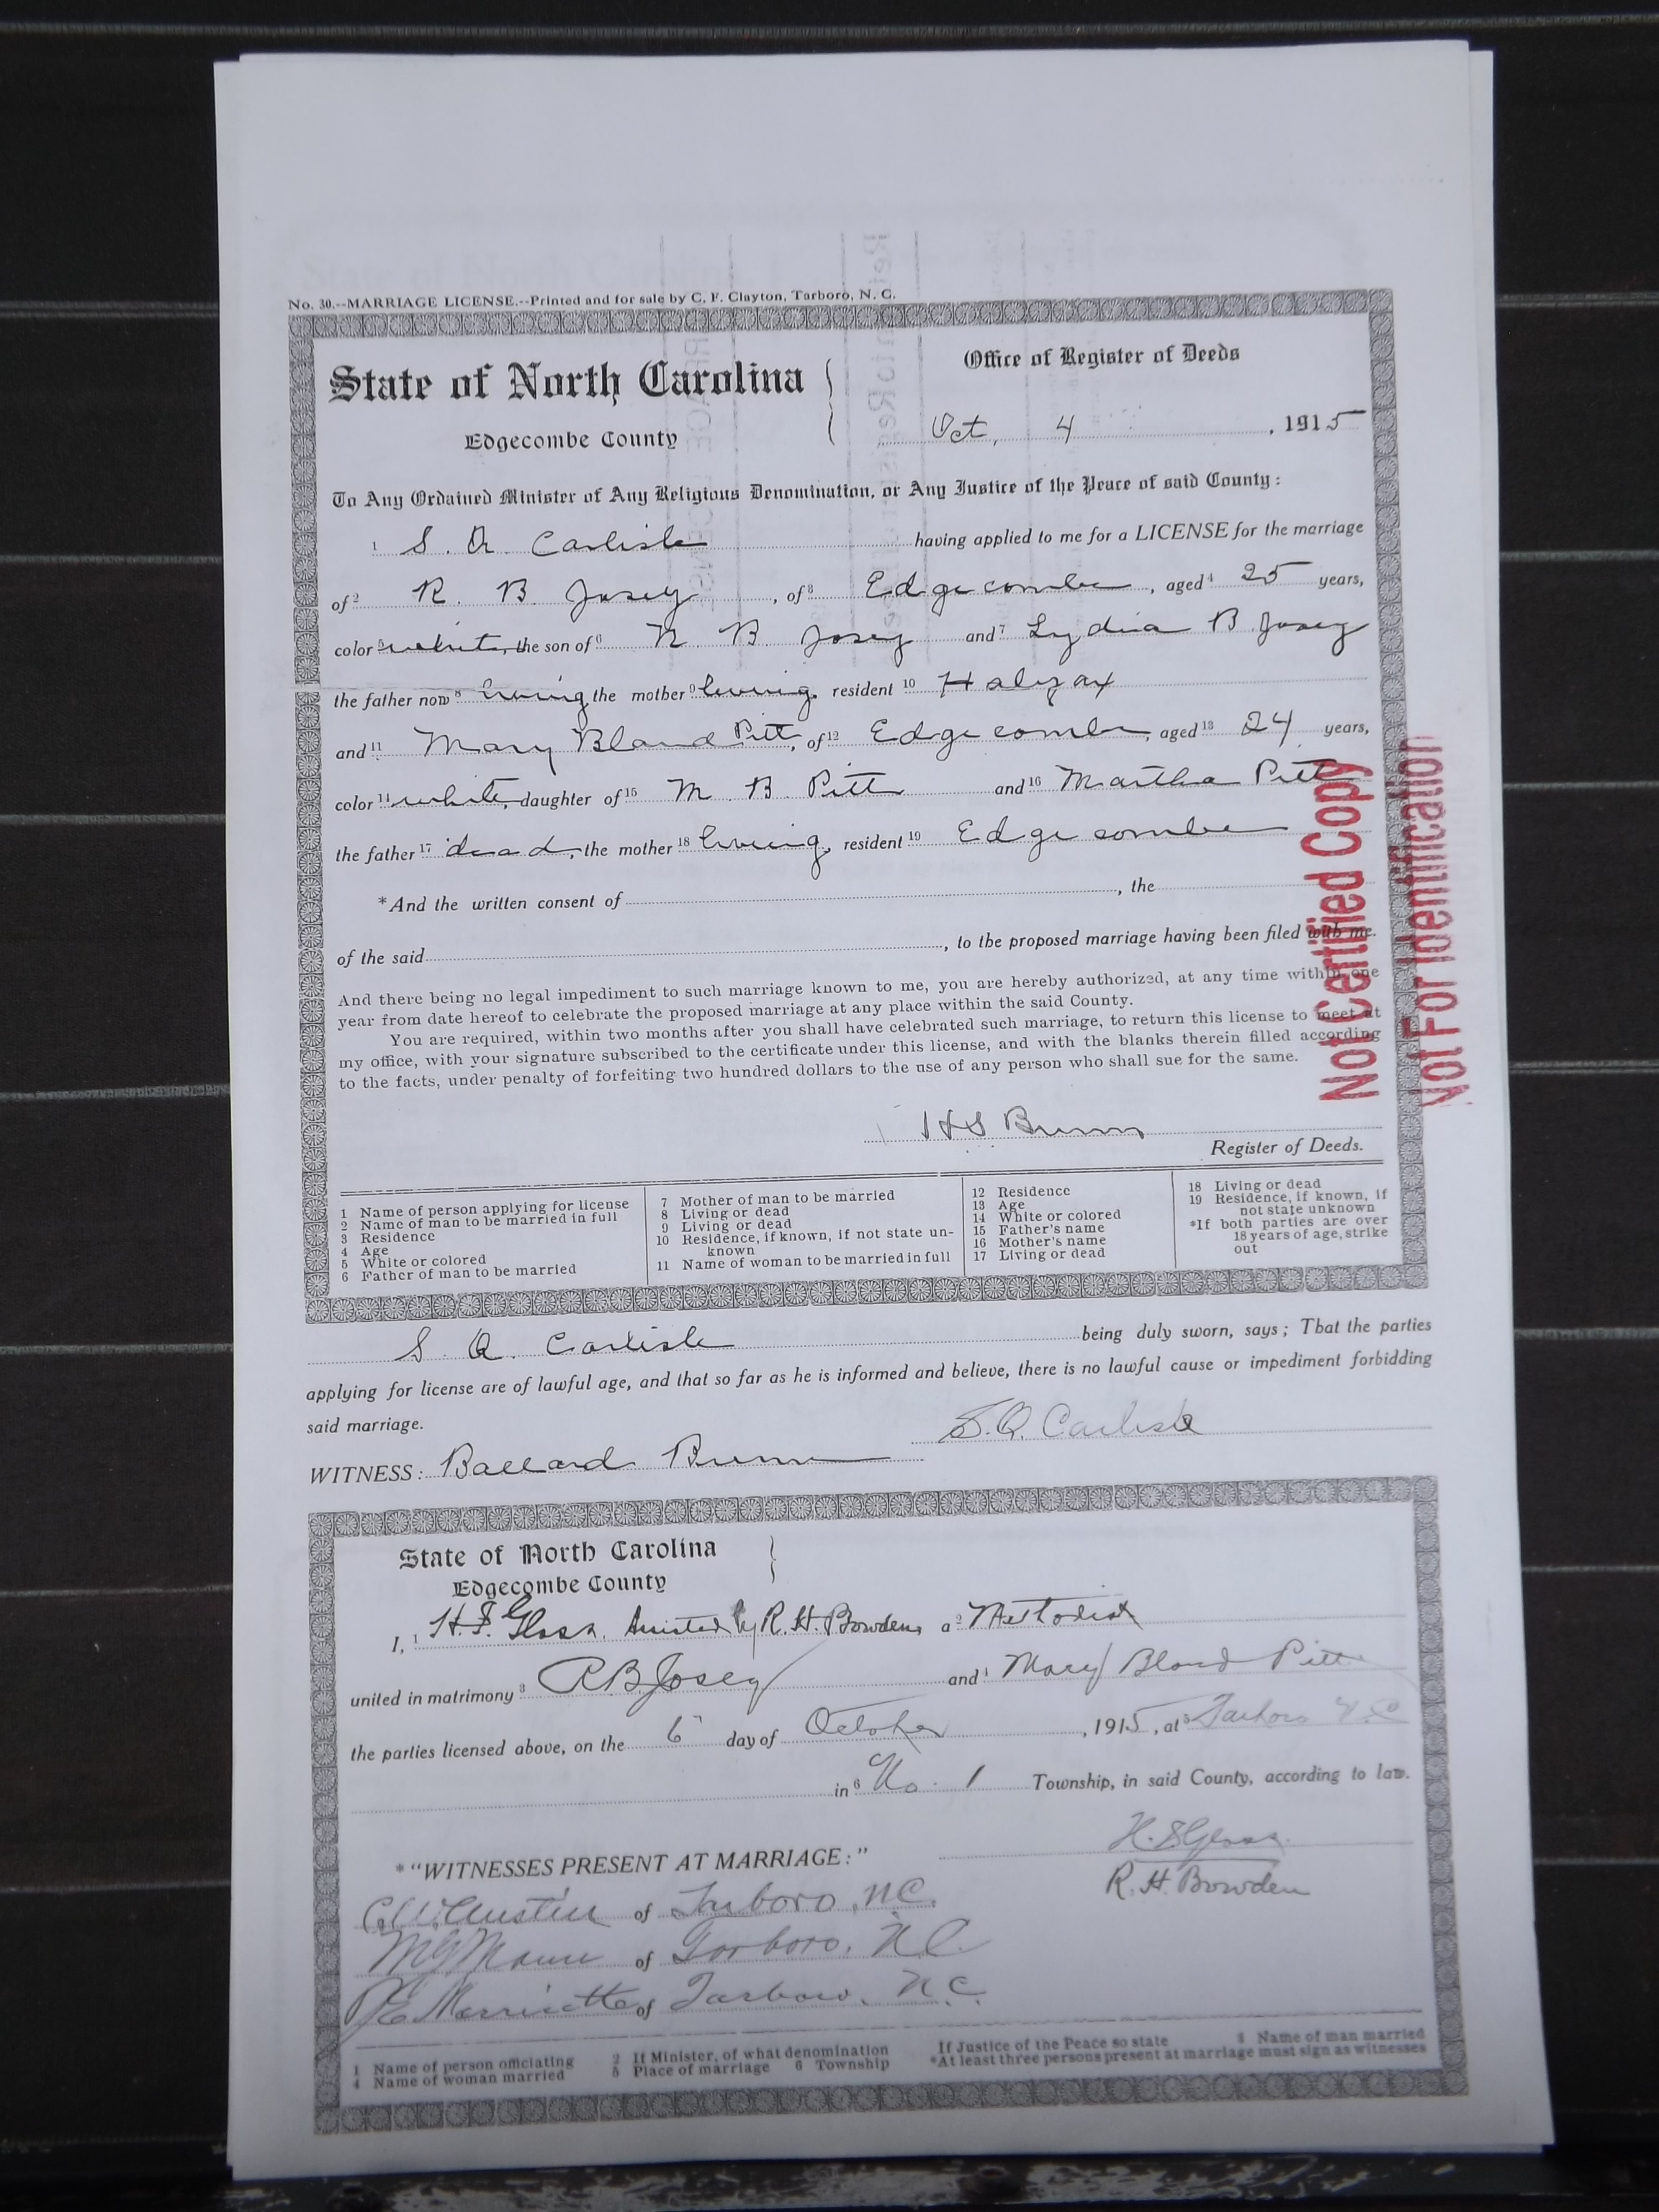 No. 30.--MARRIAGE LICENSE.--Printed and for sale by C. F. Clayton, Tarboro, N. C.
State of North Carolina
Edgecombe County
Office of Register of Deeds
Oct, 4, 1915
To Any Ordained Minister of Any Religious Denomination, or Any Justice of the Peace of said County:
1 S. Q. Carlisle having applied to me for a LICENSE for the marriage
of 2 R. B. Josey, of 3 Edgecombe, aged 4 25 years,
color 5 white, the son of 6 N B Josey and 7 Lydia B Josey
the father now 8 living the mother 9 living, resident 10 Halifax
and 11 Mary Bland Pitt, of 12 Edgecombe, aged 13 24 years,
color 14 white, daughter of 15 M B Pitt and 16 Martha Pitt
the father 17 dead, the mother 18 living, resident 19 Edgecombe
*And the written consent of , the
of the said , to the proposed marriage having been filed with me.
And there being no legal impediment to such marriage known to me, you are hereby authorized, at any time within one
year from date hereof to celebrate the proposed marriage at any place within the said County.
You are required, within two months after you shall have celebrated such marriage, to return this license to meet at
my office, with your signature subscribed to the certificate under this license, and with the blanks therein filled according
to the facts, under penalty of forfeiting two hundred dollars to the use of any person who shall sue for the same.
Not Certified Copy
Not For Identification
HS Bunn
Register of Deeds.
1 Name of person applying for license
2 Name of man to be married in full
3 Residence
4 Age
5 White or colored
6 Father of man to be married
7 Mother of man to be married
8 Living or dead
9 Living or dead
10 Residence, if known, if not state un-
known
11 Name of woman to be married in full
12 Residence
13 Age
14 White or colored
15 Father's name
16 Mother's name
17 Living or dead
18 Living or dead
19 Residence, if known, if
not state unknown
*If both parties are over
18 years of age, strike
out
S. Q. Carlisle being duly sworn, says; That the parties
applying for license are of lawful age, and that so far as he is informed and believe, there is no lawful cause or impediment forbidding
said marriage.
S. Q. Carlisle
WITNESS: Ballard Bunn
State of North Carolina
Edgecombe County
I, 1 H. S. Assisted by R. H. Bowden, a 2 Methodist
united in matrimony 3 R B Josey and 4 Mary Bland Pitt
the parties licensed above, on the 6" day of October, 1915, at 5 Tarboro N.C
in 6 No. 1 Township, in said County, according to law.
H. S
*"WITNESSES PRESENT AT MARRIAGE:"
R. H. Bowden
Austin of Tarboro, N.C.
of Tarboro, N.C.
of Tarboro, N.C.
1 Name of person officiating
2 If Minister, of what denomination
If Justice of the Peace so state
3 Name of man married
4 Name of woman married
5 Place of marriage 6 Township
*At least three persons present at marriage must sign as witnesses